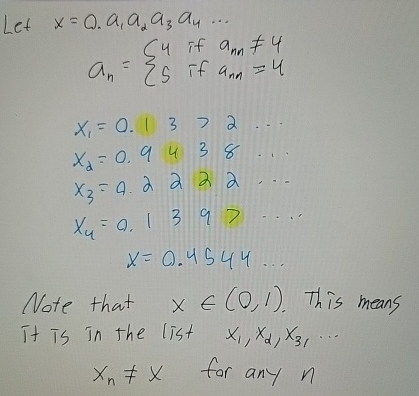 Let x = 0.a₁a₂a₃a₄ ...
aₙ = { 4 if aₙₙ ≠ 4
5 if aₙₙ = 4
x₁ = 0.1 3 7 2 ...
x₂ = 0.9 4 3 8 ...
x₃ = 0.2 2 2 2 ...
x₄ = 0.1 3 9 7 ....
x = 0.4544 ...
Note that x ∈ (0,1). This means
it is in the list x₁, x₂, x₃, ...
xₙ ≠ x for any n